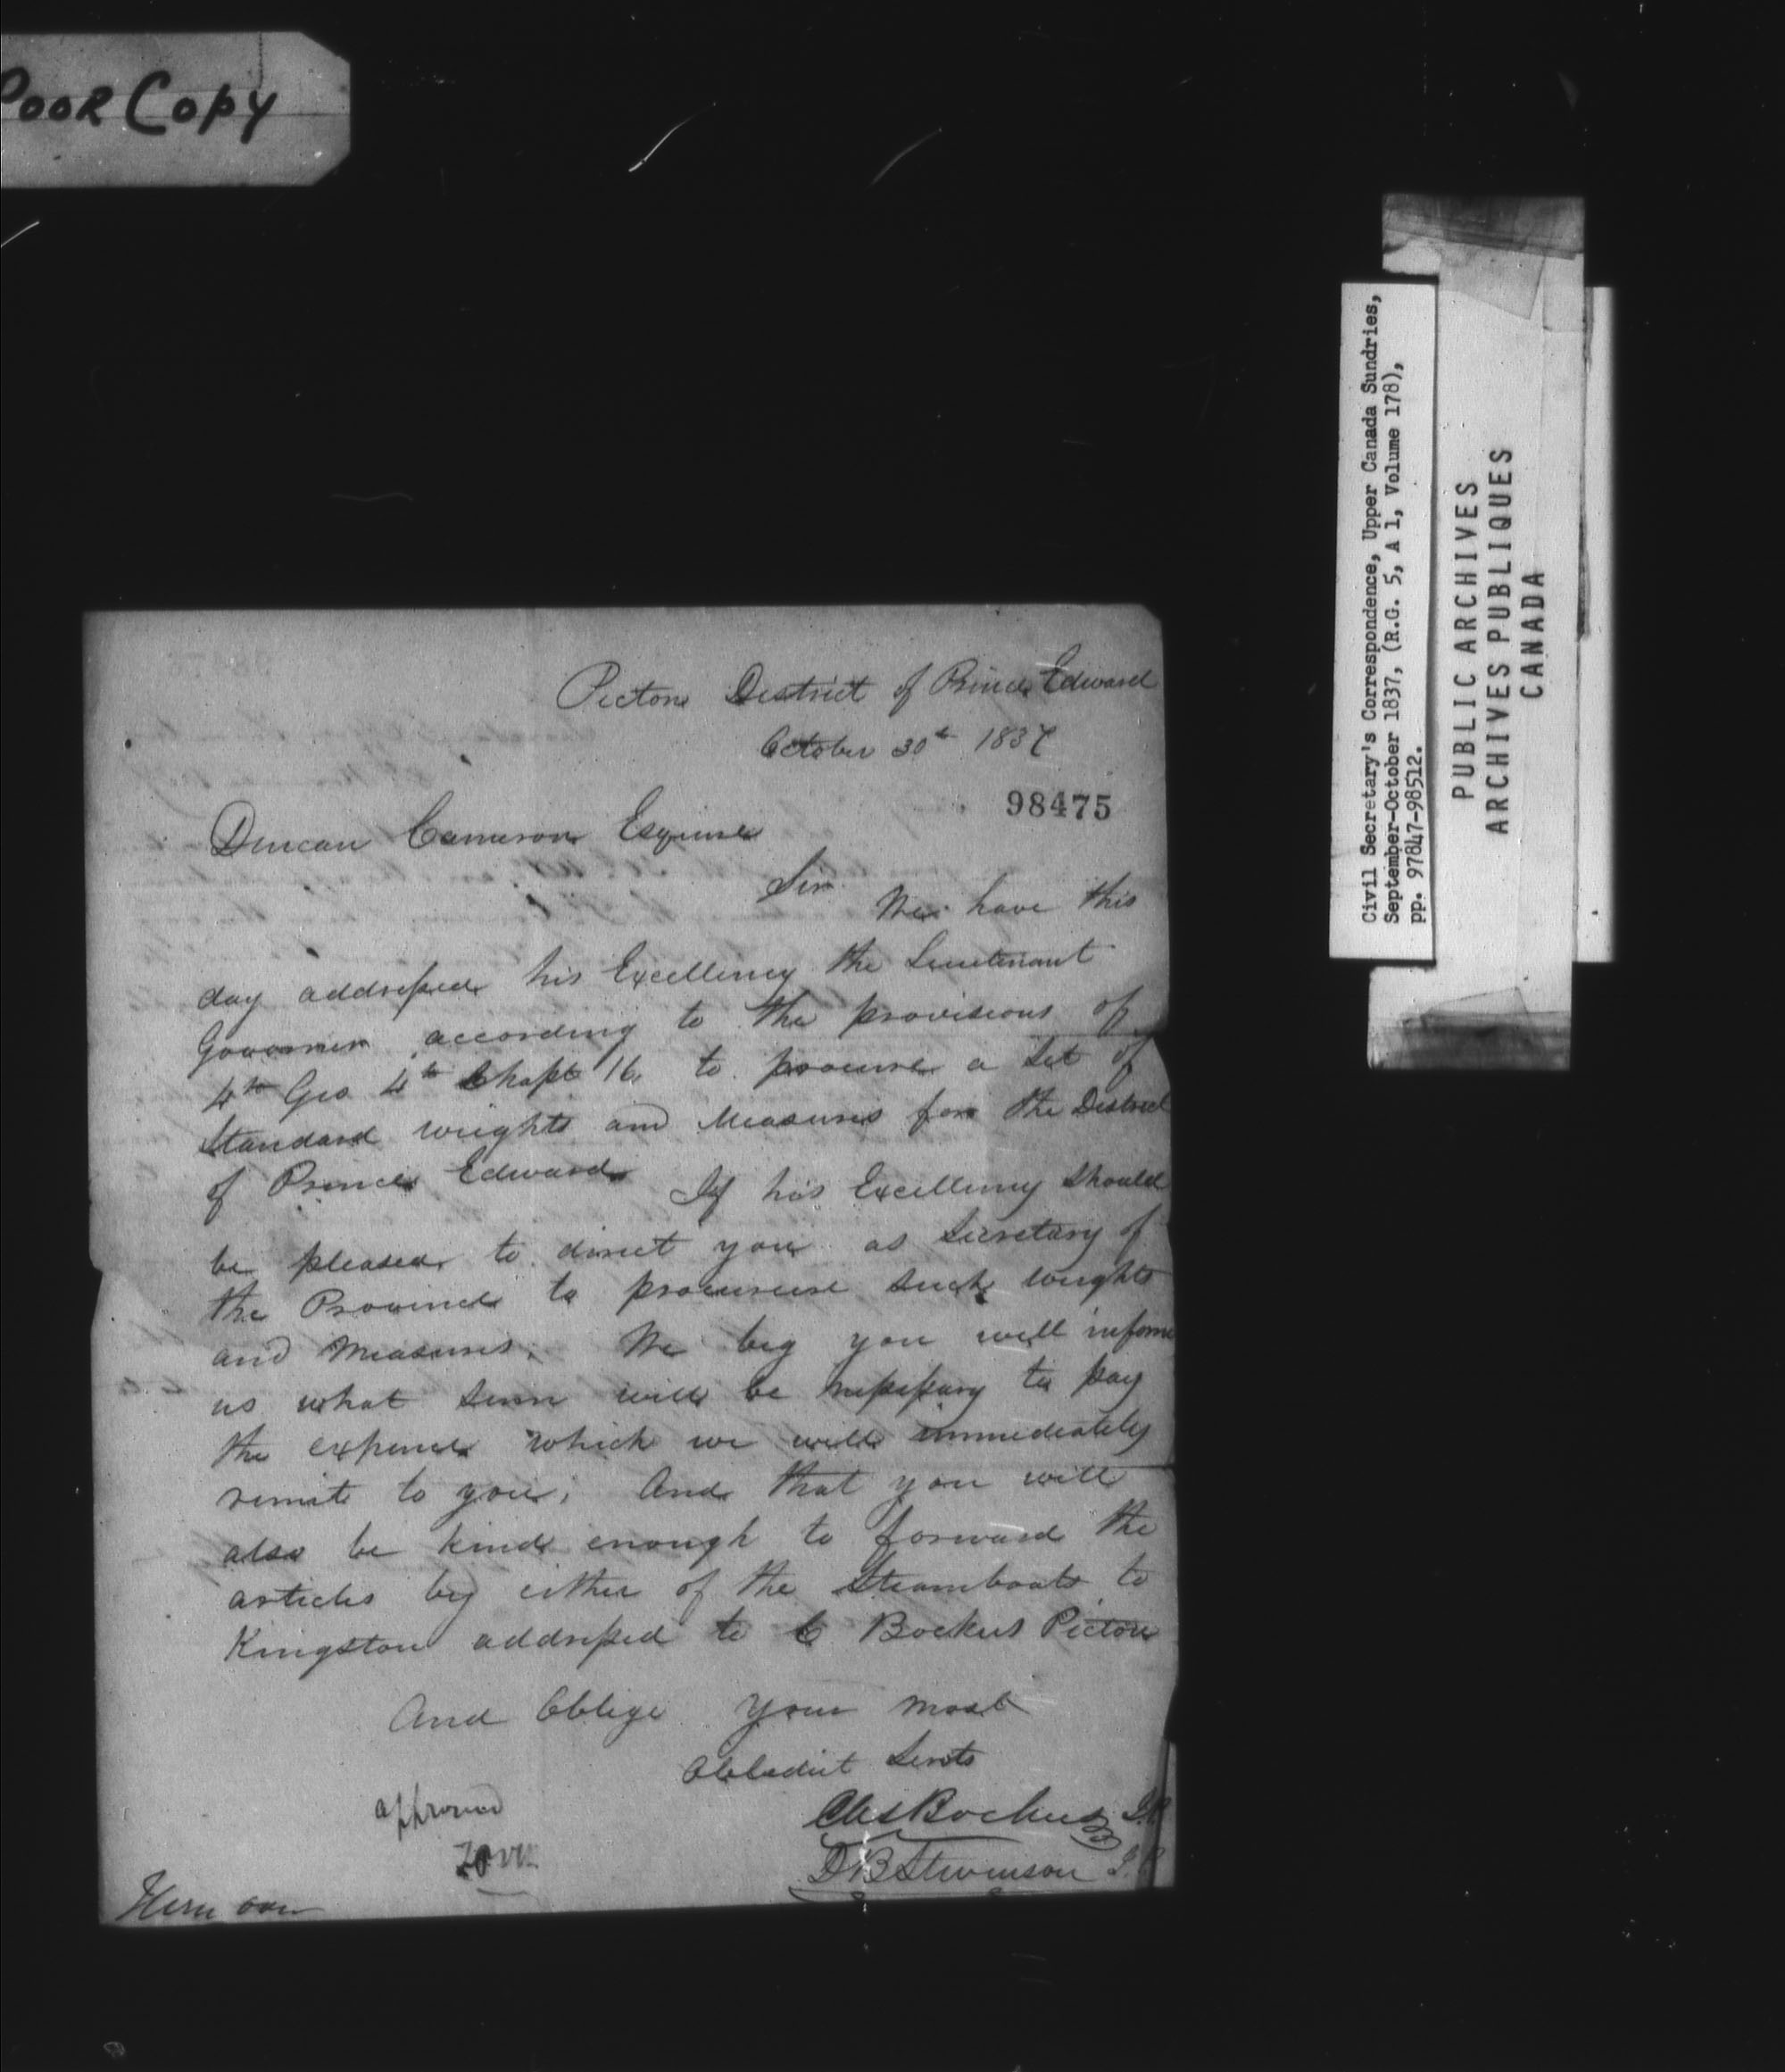 Poor Copy
Civil Secretary's Correspondence, Upper Canada Sundries,
September-October 1837, (R.G. 5, A 1, Volume 178),
pp. 97847-98512.
PUBLIC ARCHIVES
ARCHIVES PUBLIQUES
CANADA
Picton District of Prince Edward
October 30th 1837
98475
Duncan Cameron Esquire
Sir
We have this
day addressed his Excellency the Lieutenant
Governor according to the provisions of
4th Geo 4th Chapt 16 to procure a Set of
Standard weights and Measures for the District
of Prince Edward
If his Excellency Should
be pleased to direct you as Secretary of
the Province to procureure such weights
and Measures, We beg you will inform
us what Sum will be nessessary to pay
the expence which we will immediately
remit to you; And that you will
also be kind enough to forward the
articles by either of the Steamboats to
Kingston addressed to C Bockus Picton
And Oblige Your most
Obbedient Servts
Chs Bockus J.P.
D B Stevenson J.P.
approved